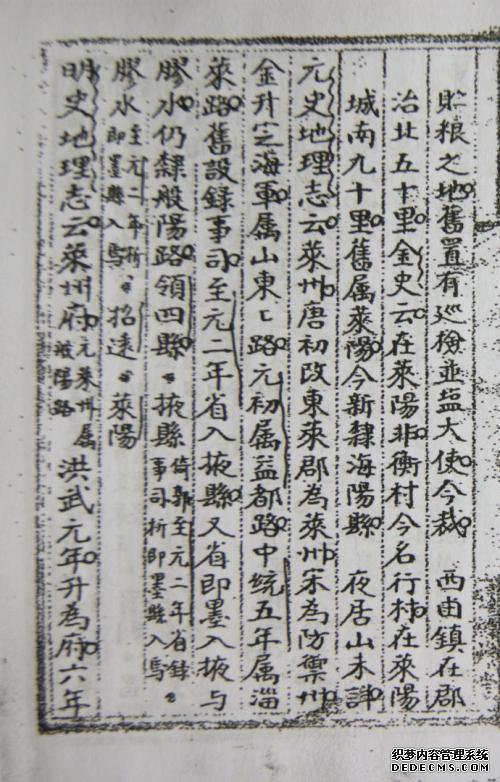 貯粮之地舊置有巡檢並盐大使今裁　西由鎮在郡
治北五十里金史云在萊陽非衡村今名行村在萊陽
城南九十里舊属萊陽今新隸海陽縣　夜居山未詳
元史地理志云萊州唐初改東萊郡為萊州宋為防禦州
金升定海軍属山東ヒ路元初属益都路中統五年属淄
萊路舊設録事司至元二年省入掖縣又省即墨入掖与
膠水仍隸般陽路領四縣。掖縣倚郭至元二年省録事司析即墨縣入焉。
膠水至元二年析即墨縣入焉。招远。萊陽
明史地理志云萊州府元萊州属般陽路洪武元年升為府六年
织梦内容管理系统
DEDECMS.COM